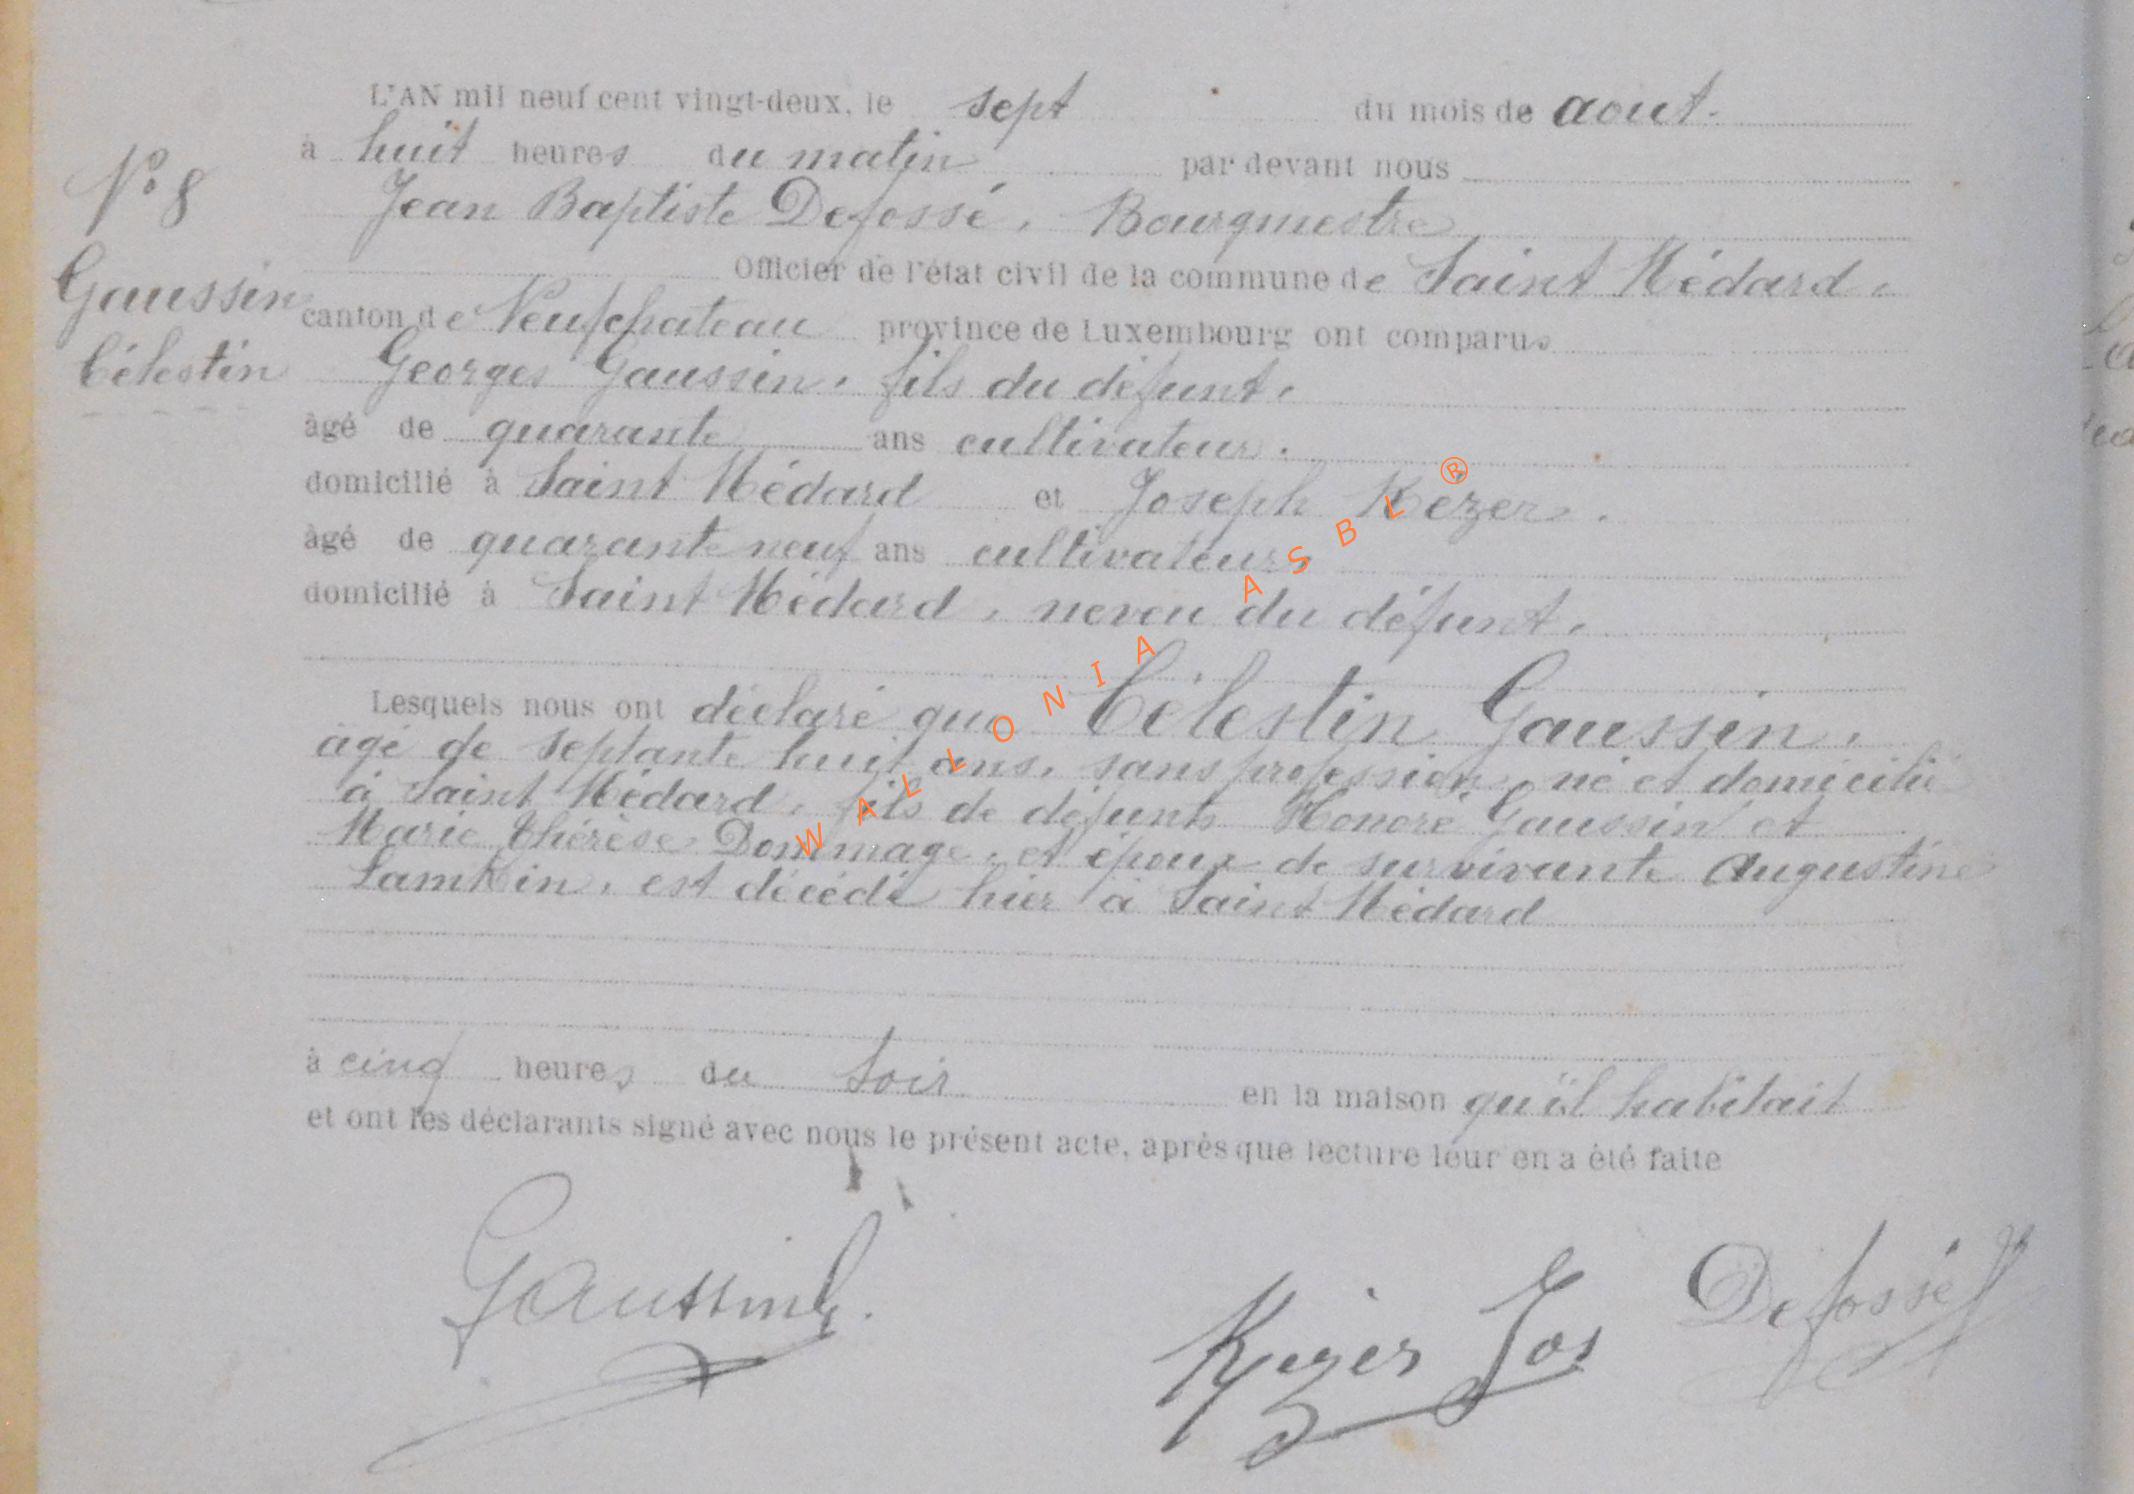 L'AN mil neuf cent vingt-deux, le sept du mois de aout.
à huit heures du matin par devant nous
N° 8
Jean Baptiste Defossé, Bourgmestre
Officier de l'état civil de la commune de Saint Médard,
Gaussin
canton de Neufchateau province de Luxembourg ont comparus
Célestin
Georges Gaussin, fils du défunt,
âgé de quarante ans cultivateur,
domicilié à Saint Médard et Joseph Kezer,
âgé de quarante neuf ans cultivateur,
domicilié à Saint Médard, neveu du défunt,
Lesquels nous ont déclaré que Célestin Gaussin,
âgé de septante huit ans, sans profession, né et domicilié
à Saint Médard, fils de défunts Honoré Gaussin et
Marie Thérèse Dommage, et époux de survivante Augustine
Lamkin, est décédé hier à Saint Médard
à cinq heures du soir en la maison qu'il habitait
et ont les déclarants signé avec nous le présent acte, après que lecture leur en a été faite
Gaussin G.
Kezer Jos
Defossé
WALLONIA ASBL ®